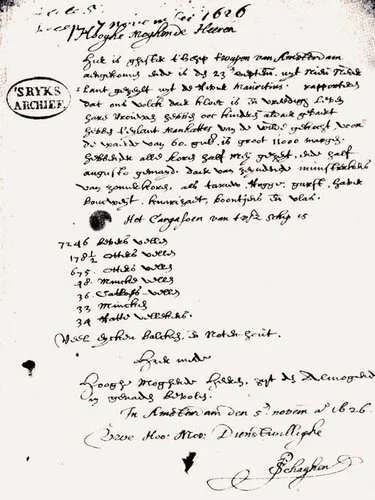 7 novem 1626
Hooghe Moghende Heeren
'SRYKS
ARCHIEF
Hier is ghister t'schip t'wapen van Amsterdam
aengekomen ende is den 23 septem. uyt Nieu Neder
lant gezeylt uyt de Rivier Mauritius. rapporteren
dat ons volck daer kloec is en vreedigh leven
haer Vrouwen hebben oock kinderen aldaer gebaert
hebben t'eylant Manhattes van de wilde gekocht voor
de waerde van 60 guld. is groot 11000 morgen
hebbende alle koren half mey gezeyt, ende half
augusto gemayd. Daer van zeynden munsterkens
van zomerkoren, als tarwe, Rogge, garst, haver
boucweyt, knarizaet, boontjens en vlas.
Het Cargasoen van tvsz schip is
7246 Bevers vellen
178½ Otters vellen
675 Otters vellen
48 Mincke vellen
36 Catloes vellen
33 Mincken
34 Ratte vellekens.
Veel eycken balcken, en Noten hout.
Hier mede
Hooghe Moghende Heeren, zyt den Almogende
in genaden bevolen.
In Amsterdam den 5en novem ao 1626.
Uwe Hoo: Moo: Dienstwillighe
P Schaghen